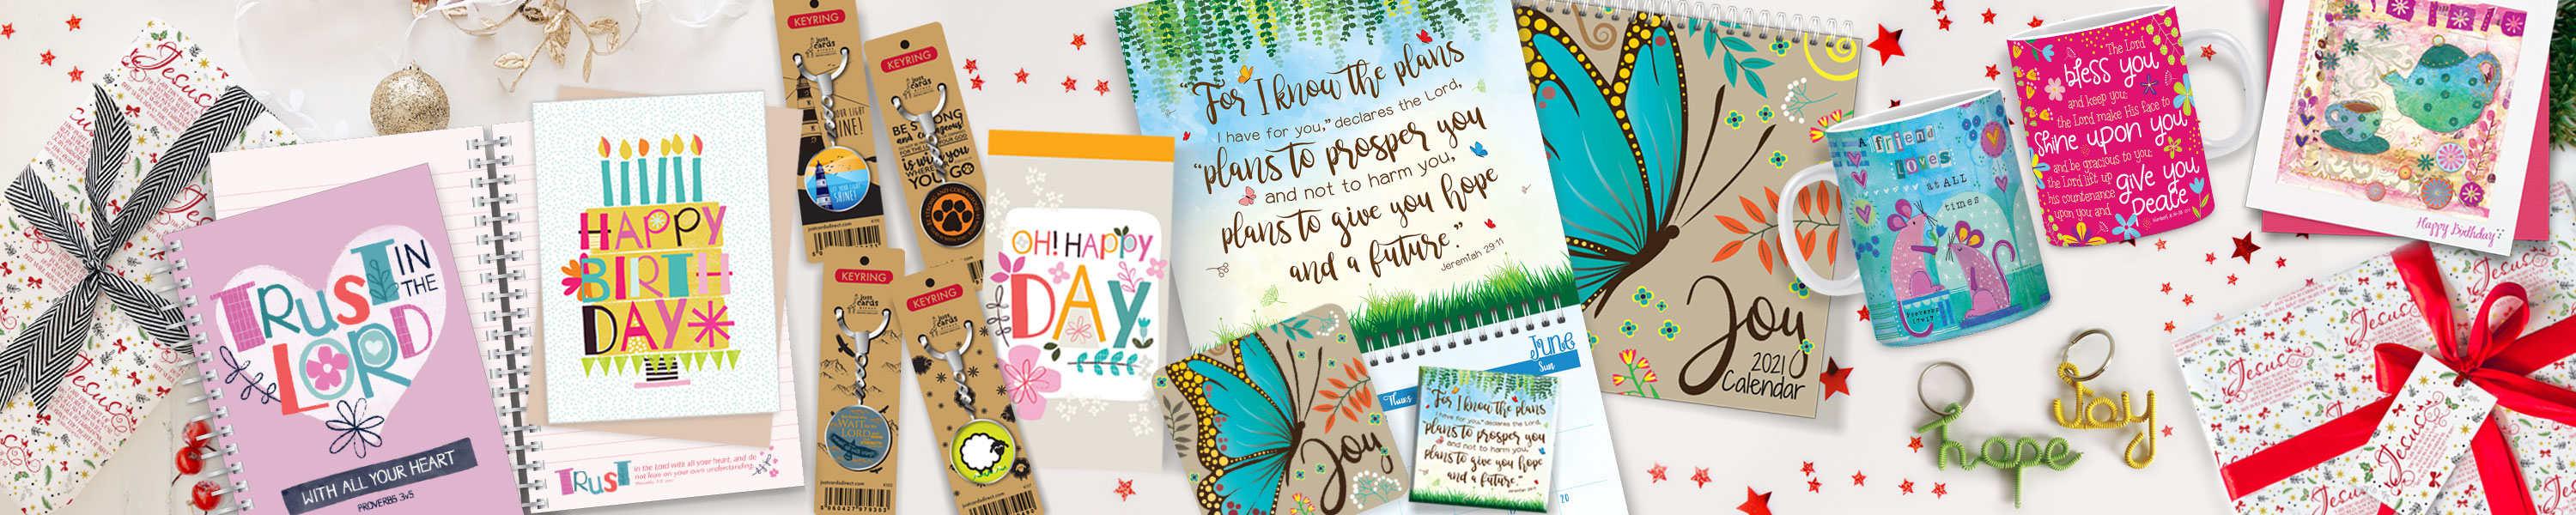 Jesus
Jesus
TRUST
IN
THE
LORD
WITH ALL YOUR HEART
PROVERBS 3v5
HAPPY
BIRTH
DAY
TRUST
in the Lord with all your heart, and do
not lean on your own understanding.
KEYRING
just
cards
YOUR LIGHT
SHINE!
KEYRING
just
cards
BE STRONG
and courageous!
is with you
WHERE
YOU GO
KEYRING
just
cards
WAIT
LORD
justcardsdirect.com
KEYRING
just
cards
justcardsdirect.com
OH! HAPPY
DAY
"For I know the plans
I have for you," declares the Lord,
"plans to prosper you
and not to harm you,
plans to give you hope
and a future."
Jeremiah 29:11
JUNE
Sun
Thurs
20
Joy
2021
Calendar
Joy
For I know the plans
I have for you," declares the Lord,
plans to prosper you
and not to harm you,
plans to give you hope
and a future."
Jeremiah 29:11
A friend
LOVES
at ALL
times
Proverbs
17v17
The Lord
bless you
and keep you:
the Lord make His face to
Shine upon you
and be gracious to you:
the Lord lift up
his countenance
upon you and
give you
Peace
Happy Birthday
hope
Joy
Jesus
Jesus
Jesus